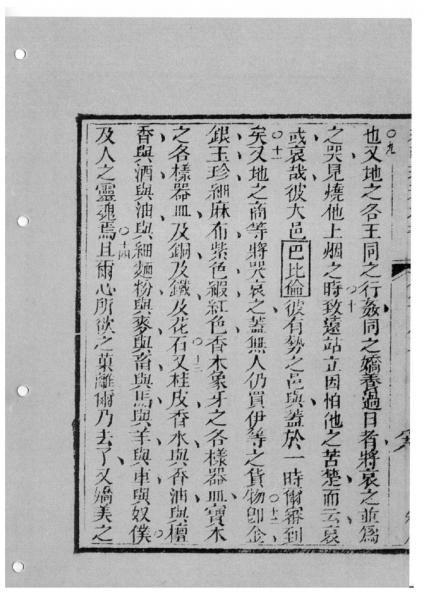 ○九
也又地之各王同之行姦同之嬌養過日者將哀之並為
之哭見燒他上烟之時○十致遠站立因怕他之苦楚而云哀
或哀哉彼大邑巴比倫彼有勢之邑與蓋於一時爾審到
矣○十一又地之商等將哭哀之蓋無人仍買伊等之貨物○十二即金
銀玉珍細麻布紫色緞紅色香木象牙之各樣器皿寶木
之各樣器皿及銅及鐵及花石○十三又桂皮香水與香油與檀
香與酒與油與細麵粉與麥與畜與馬與羊與車與奴僕
及人之靈魂焉○十四且爾心所欲之菓離爾乃去了又嬌美之